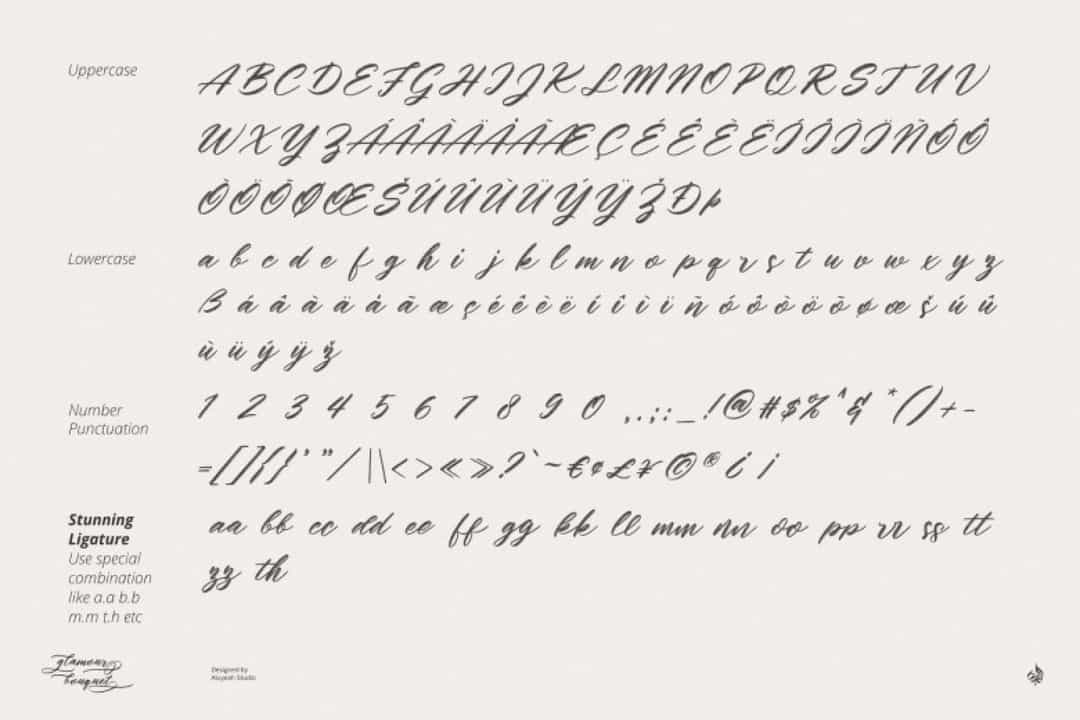 Uppercase
A B C D E F G H I J K L M N O P Q R S T U V
W X Y Z Á Â À Ä Å Ã Æ Ç É Ê È Ë Í Î Ì Ï Ñ Ó Ô
Ò Ö Õ Ø Œ Š Ú Û Ù Ü Ý Ÿ Ž Đ þ
Lowercase
a b c d e f g h i j k l m n o p q r s t u v w x y z
ß á â à ä å ã æ ç é ê è ë í î ì ï ñ ó ô ò ö õ ø œ š ú û
ù ü ý ÿ ž
Number
Punctuation
1 2 3 4 5 6 7 8 9 0 , . ; : _ ! @ # $ % ^ & * ( ) + -
= [ ] { } ' " / | \ < > « » ? ` ~ € ¢ £ ¥ © ® ¿ ¡
Stunning
Ligature
Use special
combination
like a.a b.b
m.m t.h etc
aa bb cc dd ee ff gg kk ll mm nn oo pp rr ss tt
zz th
glamour
bouquet
Designed by
Aisyeah Studio